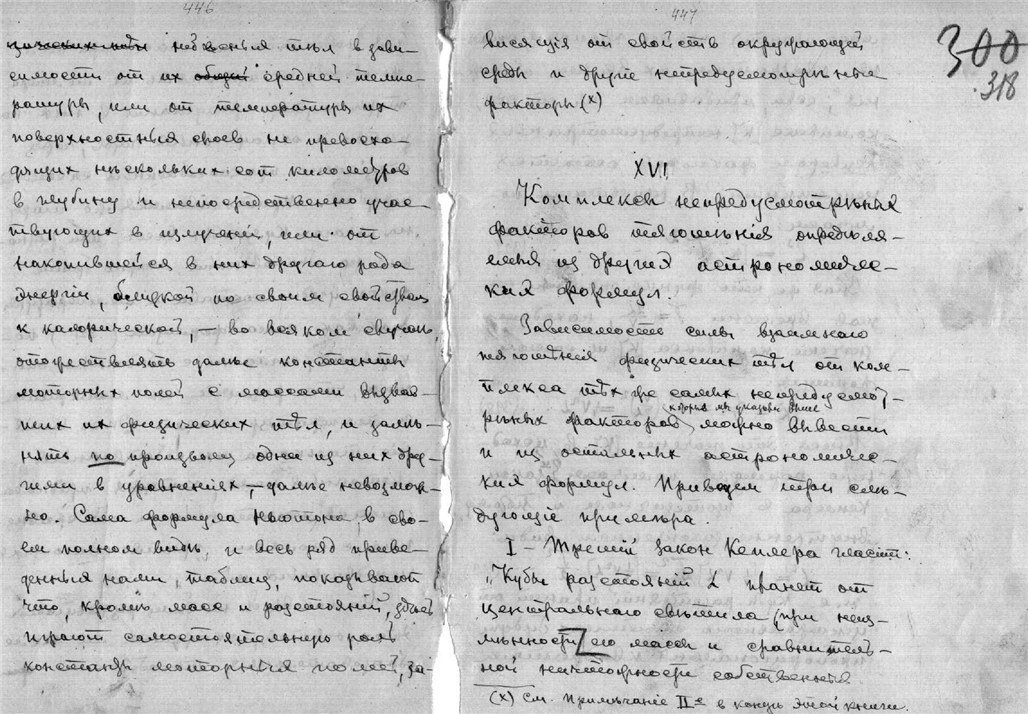 446
небесныя тѣл в зави-
симости от их общей средней темпе-
ратуры, или от температуры их
поверхностныя слоев не превосхо-
дящих нѣскольких сот километров
в глубину и непосредственно учас-
твующих в излучении, или от
накопившейся в них другого рода
энергіи, близкой по своим свойствам
к калорической, — во всяком случаѣ,
отождествлять далѣе константы
моторных полей с массами вызвав-
ших их физических тѣл, и замѣ-
нять по произволу одни из них дру-
гими в уравненіях, — далѣе невозмож-
но. Сама формула Ньютона, в сво-
ем полном видѣ, и весь ряд приве-
денныя нами, таблиц, показывают
что, кромѣ масс и разстояній, здѣсь
играют самостоятельную роль
константы моторныя полей, за-
447
висящія от свойств окружающей
среды и другіе непредусмотрѣнные
факторы (x)
300
318
XVI.
Комплексы непредусмотрѣнныя
факторов тяготѣнія опредѣля-
емыя из другия астрономичес-
кия формул.
Зависимость силы взаимнаго
тяготѣнія физических тѣл от ком-
плекса тѣх же самых непредусмот-
которыя мы указали выше
рѣных факторов, можно вывести
и из остальных астрономичес-
кия формул. Приведем три слѣ-
дующіе примѣра.
I — Третій закон Кеплера гласит:
„Кубы разстояній 2 планет от
центральнаго свѣтила (при неиз-
мѣнности его массы и сравнитель-
ной ничтожности собственныя
(x) См. Примѣчаніе II-е в концѣ этой книги.